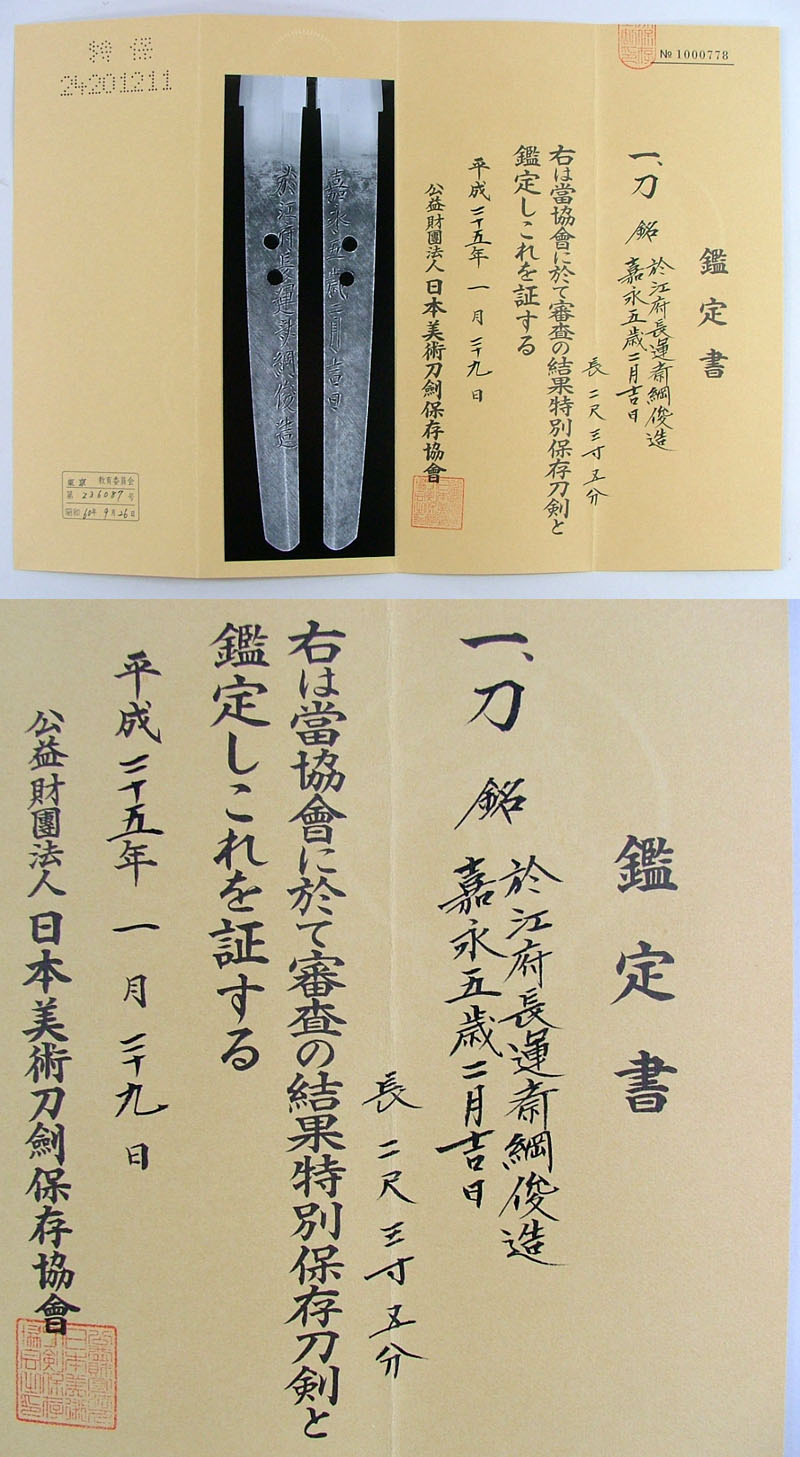 № 1000778
鑑定書
一、刀 銘 於江府長運斎綱俊造
嘉永五歳二月吉日
長 二尺三寸五分
右は當協會に於て審査の結果特別保存刀剣と
鑑定しこれを証する
平成二十五年 一月二十九日
公益財團法人 日本美術刀劍保存協會
嘉永五歳二月吉日
於江府長運斎綱俊造
特 保
24201211
東京 教育委員会
第 236087 号
昭和 60年 9月 26日
鑑定書
一、刀 銘 於江府長運斎綱俊造
嘉永五歳二月吉日
長 二尺三寸五分
右は當協會に於て審査の結果特別保存刀剣と
鑑定しこれを証する
平成二十五年 一月二十九日
公益財團法人 日本美術刀劍保存協會